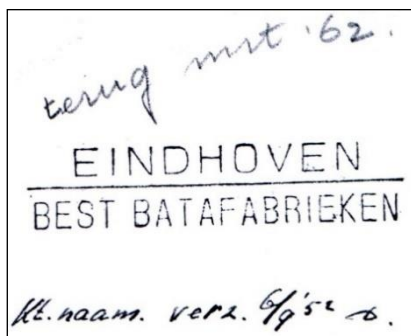 terug mrt '62.
EINDHOVEN
BEST BATAFABRIEKEN
Kt. naam. verz. 6/9 '52